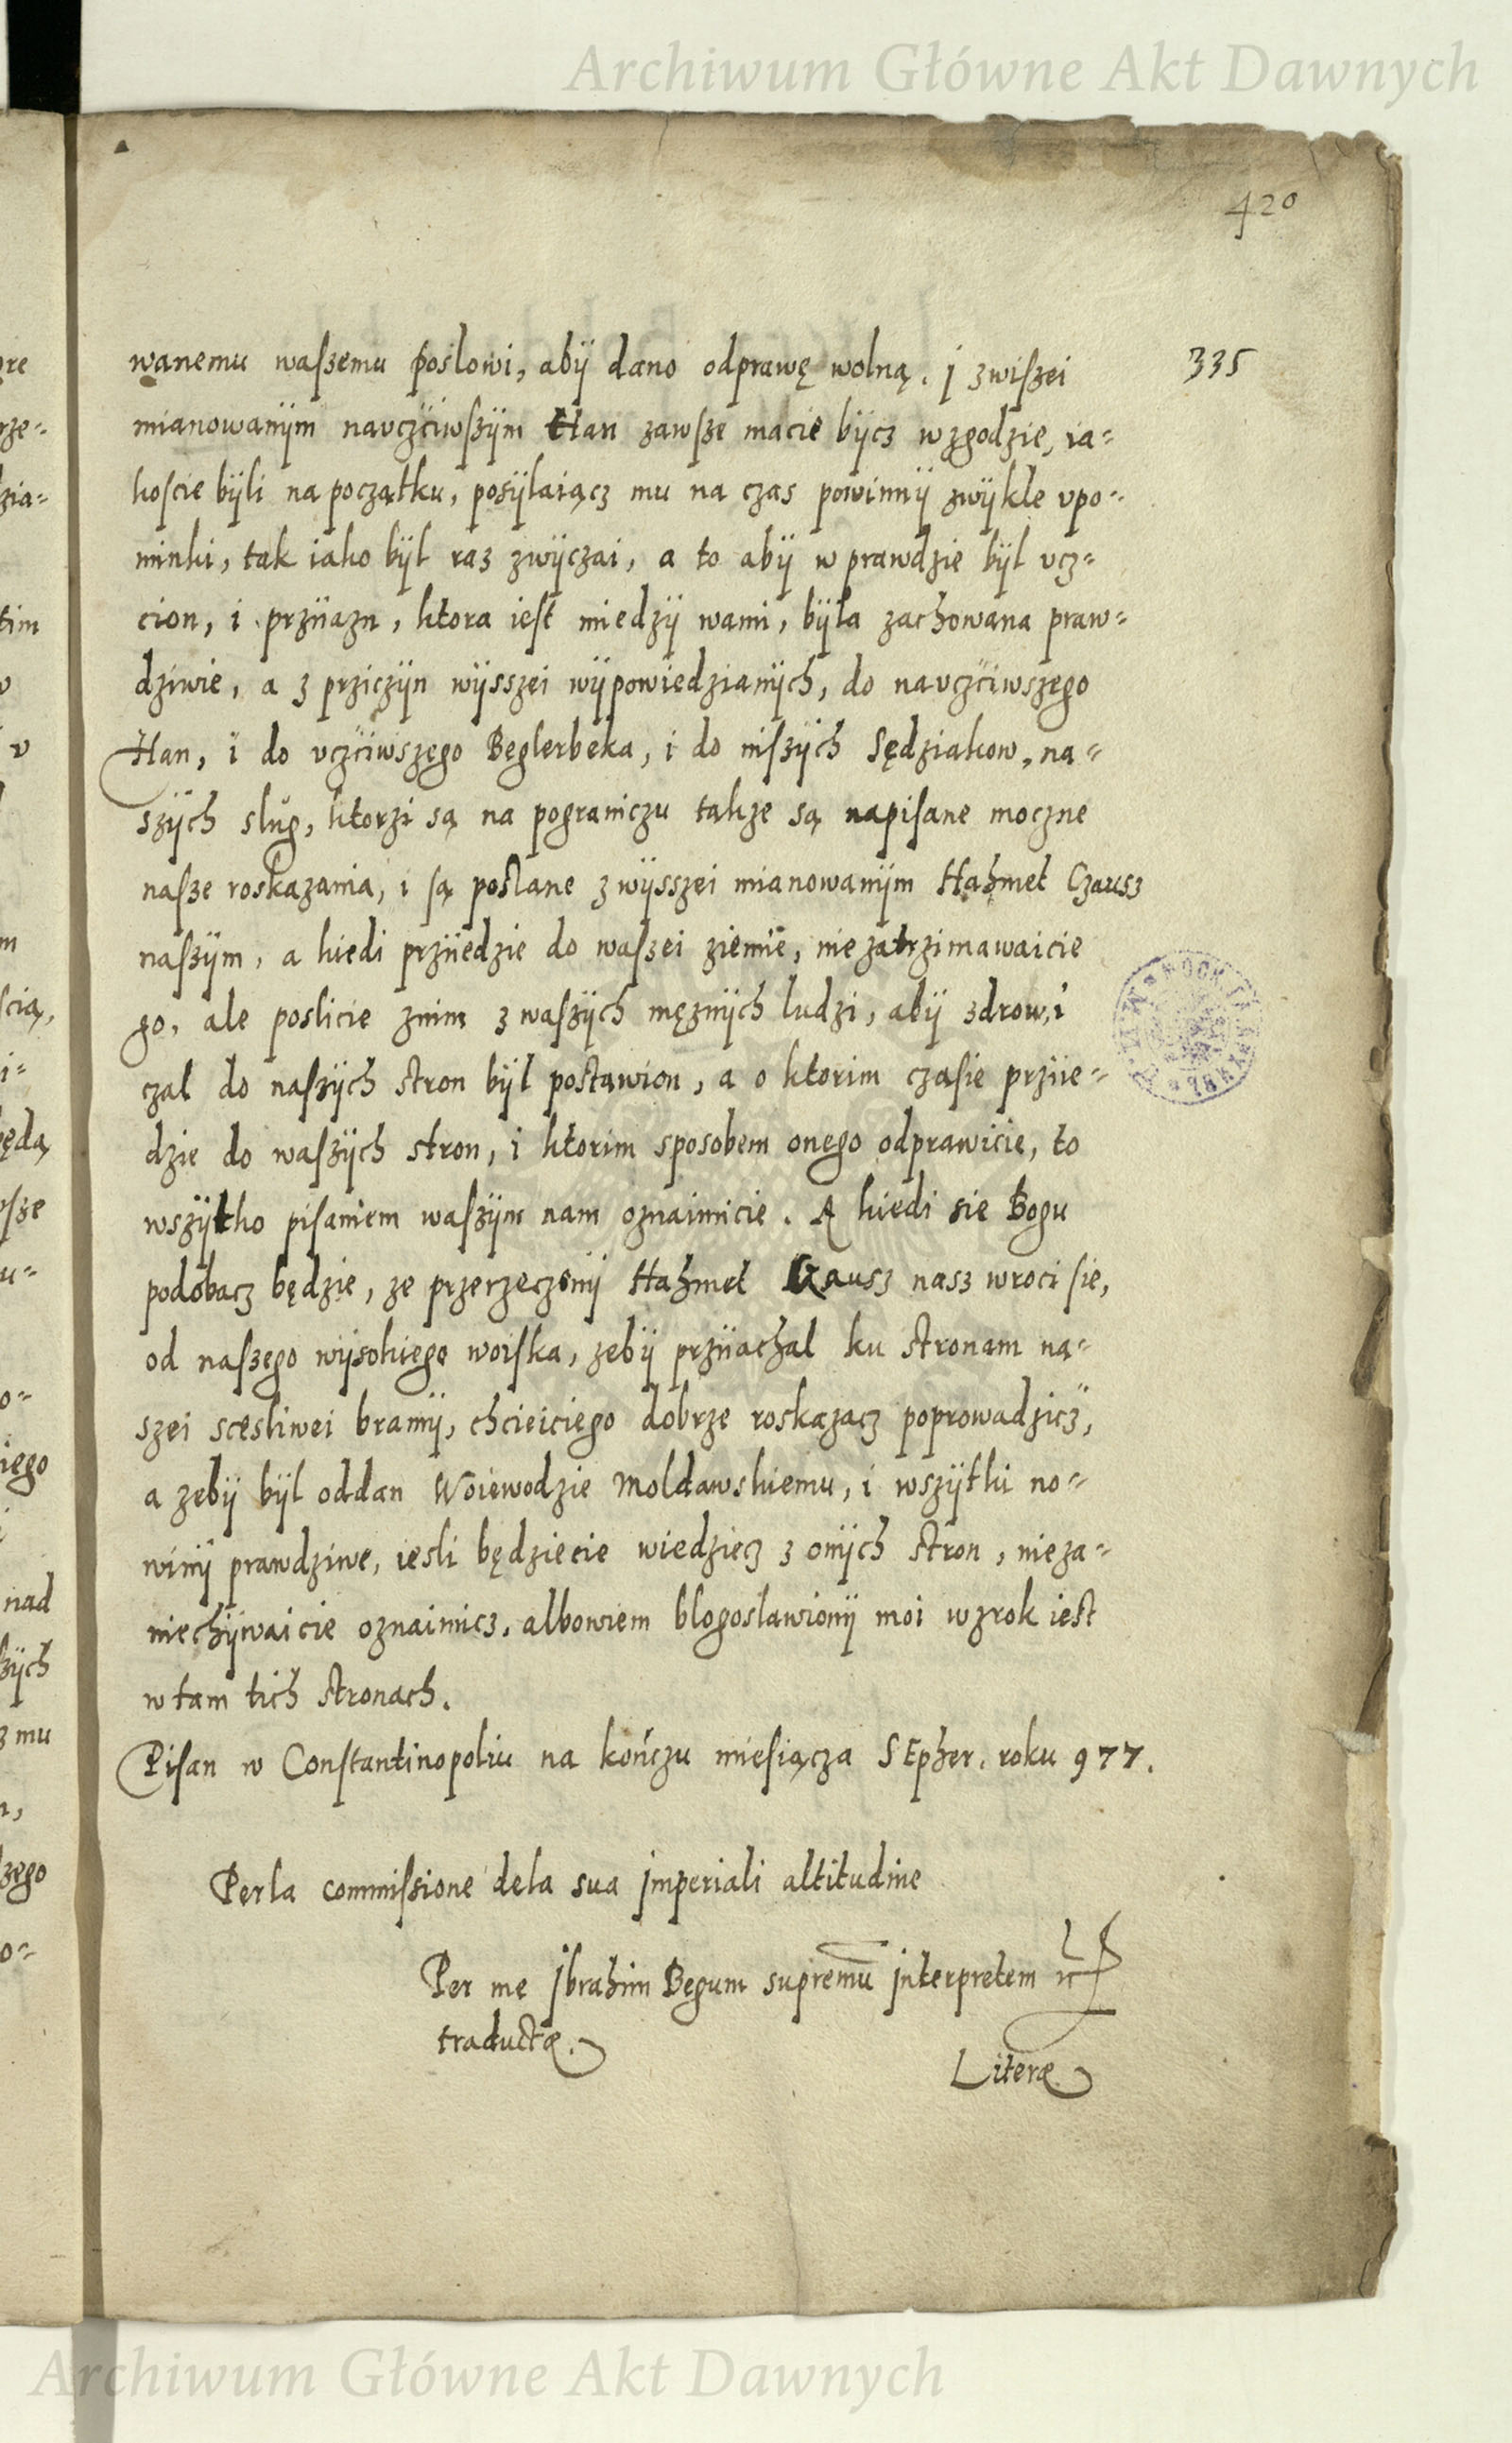 Archiwum Główne Akt Dawnych
420
wanemu waszemu posłowi, abÿ dano odprawę wolną. J zwiszei
335
mianowanÿm nauczciwszÿm Han zawsze macie bÿcz wzgodzie, ia=
koscie bÿli na początku, posÿlaiącz mu na czas powinnÿ zwÿkle vpo=
minki, tak iako bÿl raz zwÿczai, a to abÿ w prawdzie bÿl vcz=
cion, i prziiazn, ktora iest miedzÿ wami, bÿla zachowana praw=
dziwie, a z prziczÿn wÿsszei wÿpowiedzianÿch, do nauczciwszego
Han, i do vczciwszego Beglerbeka, i do niszÿch Sędziakow, na=
szÿch slug, ktorzi są na pograniczu takze są napisane moczne
nasze roskazania, i są poslane z wÿsszei mianowanÿm Hahmet Czausz
naszÿm, a kiedi prziiedzie do waszei ziemie, nie zatrzimawaicie
go, ale poslicie znim z waszÿch mężnÿch ludzi, abÿ zdrow, i
czal do naszÿch stron bÿl postawion, a o ktorim czasie prziie=
dzie do waszÿch stron, i ktorim sposobem onego odprawicie, to
wszÿtko pisaniem waszÿm nam oznaimicie. A kiedi sie Bogu
podobacz będzie, ze przerzeczonÿ Hahmet Czausz nasz wroci sie,
od naszego wÿsokiego woiska, zebÿ prziiachal ku stronam na=
szei scesliwei bramÿ, chcieiciego dobrze roskazacz poprowadzicz,
a zebÿ bÿl oddan Woiewodzie Moldawskiemu, i wszÿtki no=
winÿ prawdziwe, iesli będziecie wiedziecz z onÿch stron, nieza=
niechÿwaicie oznaimicz, albowiem blogoslawionÿ moi wzrok iest
w tam tich stronach.
Pisan w Constantinopoliu na kończu miesiącza SEpher. roku 977.
Perla commissione dela sua imperiali altitudine
Per me Jbrahim Begum supremū interpretem
traductæ.
Literæ
Archiwum Główne Akt Dawnych